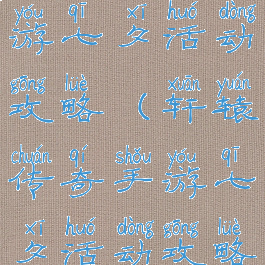 yóu qī xī huó dòng
游七夕活动
gōng lüè xuān yuán
攻略(轩辕
chuán qí shǒu yóu qī
传奇手游七
xī huó dòng gōng lüè
夕活动攻略